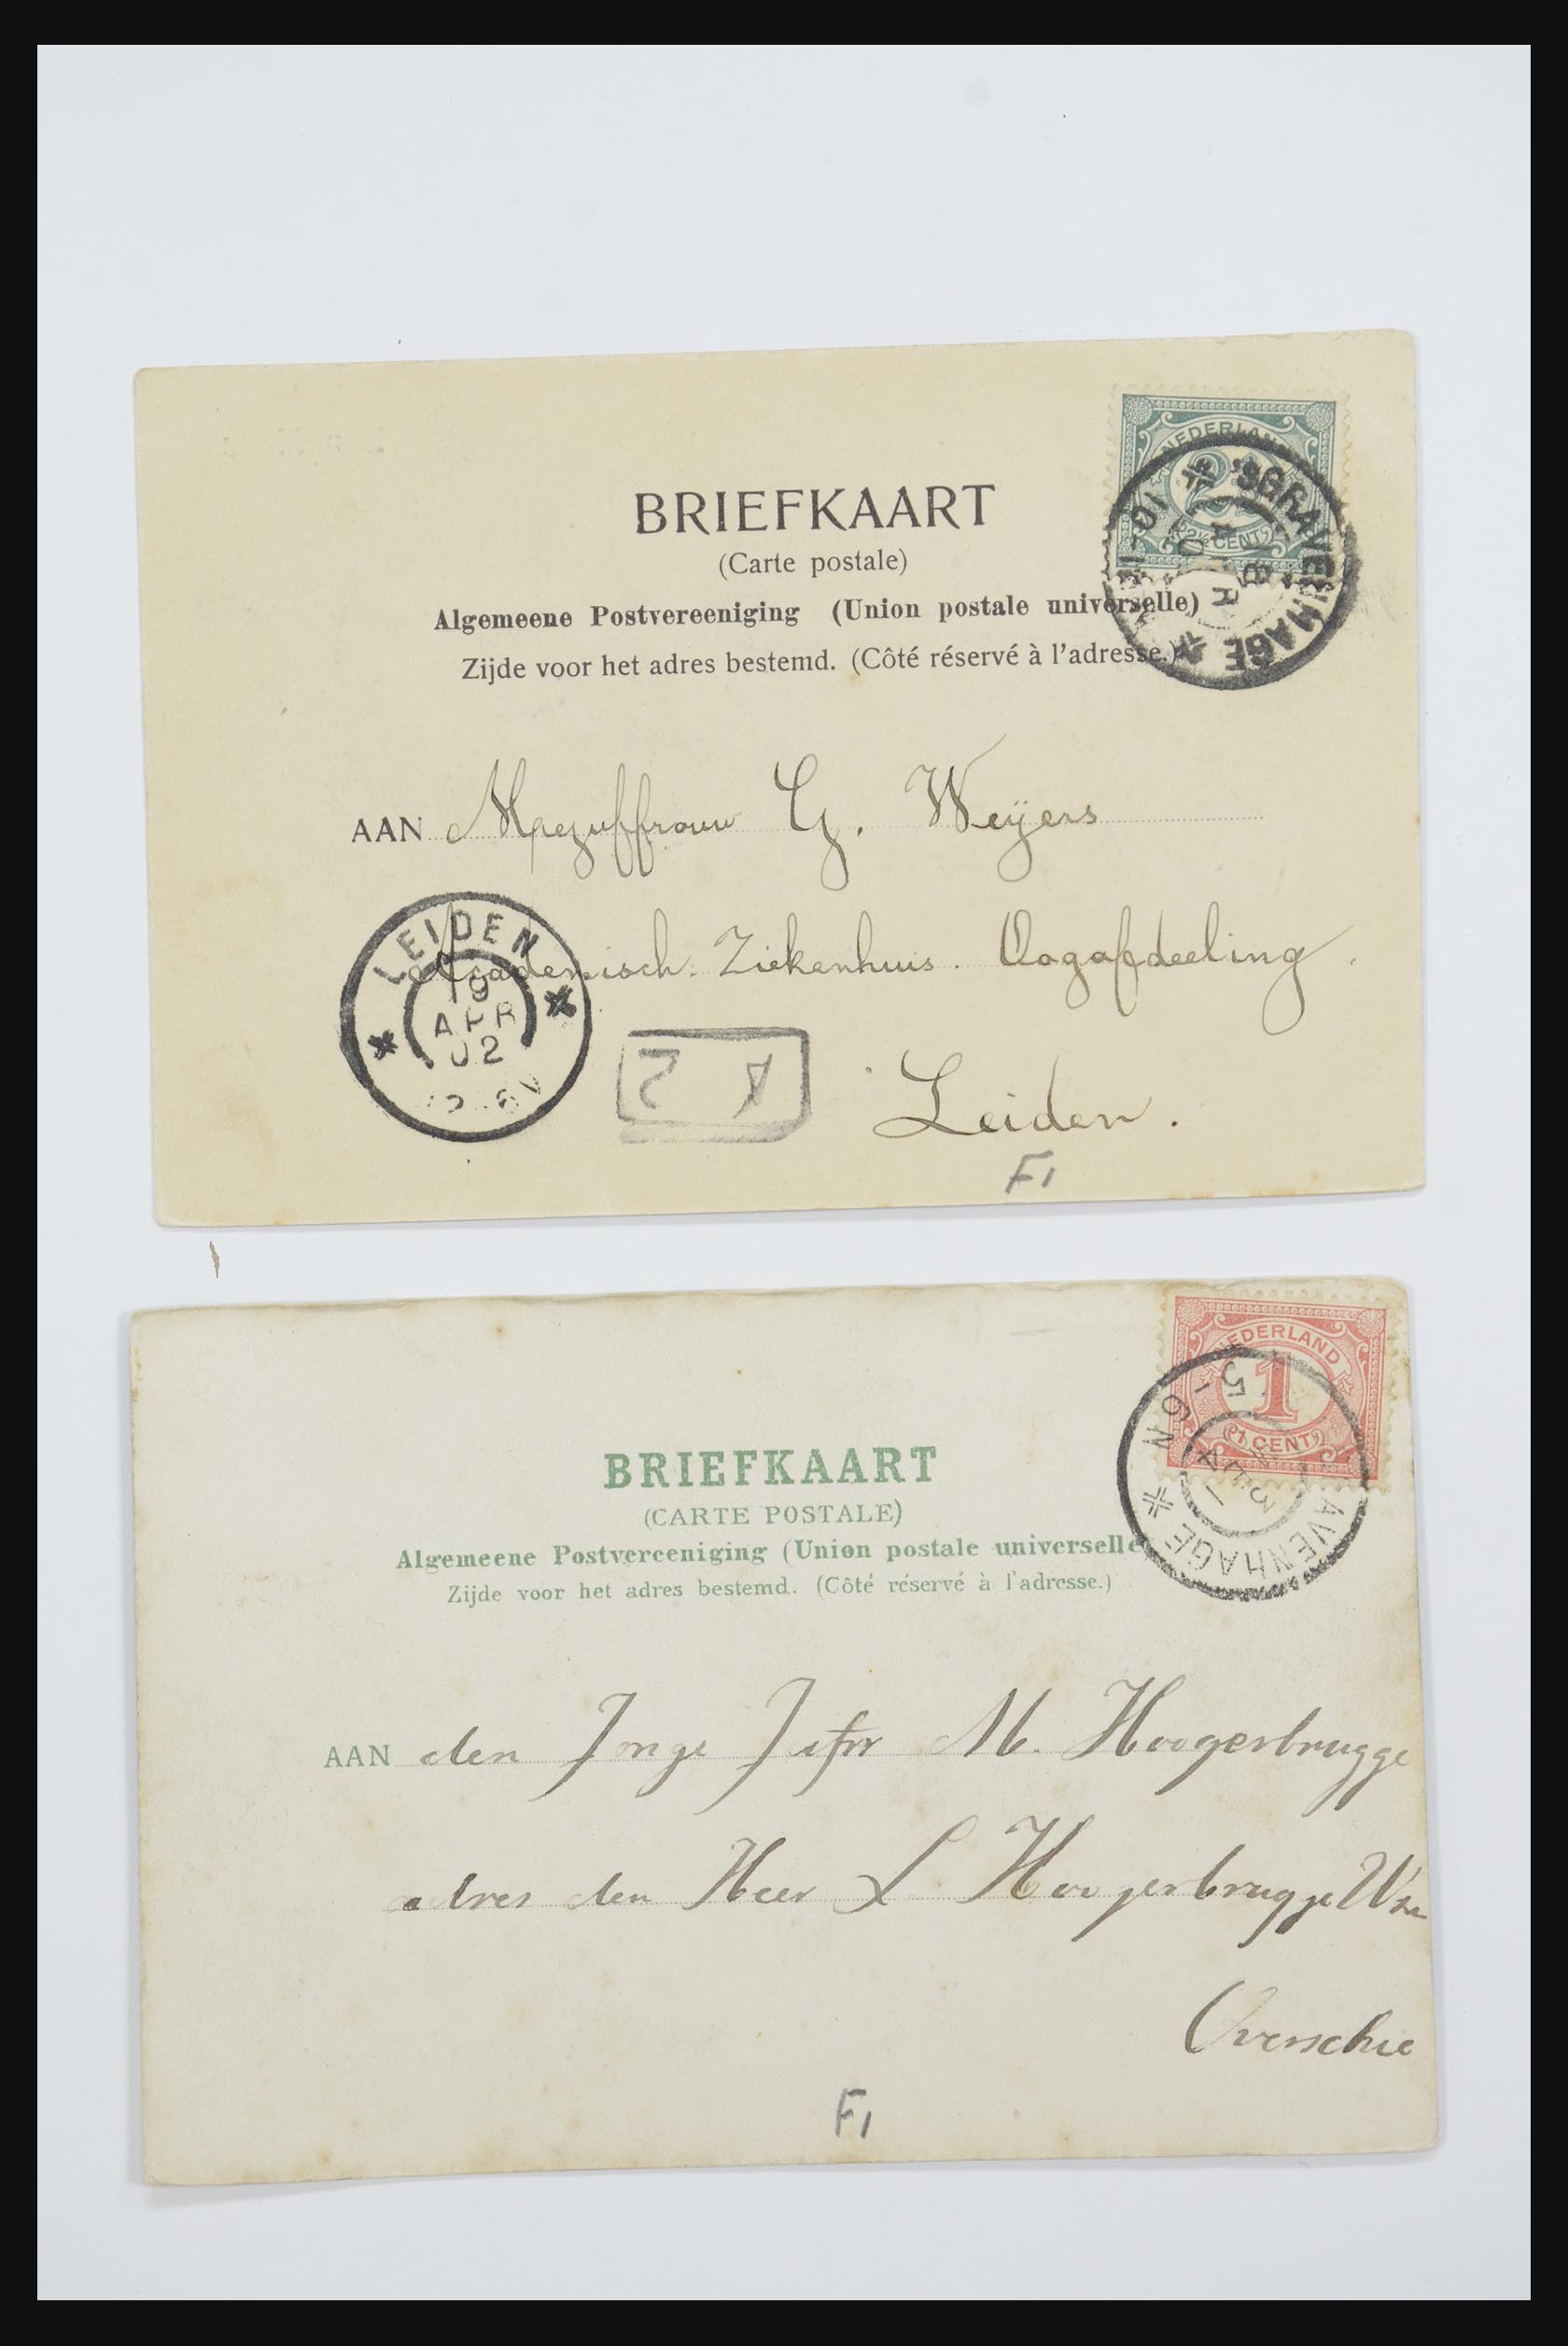 BRIEFKAART
(Carte postale)
Algemeene Postvereeniging (Union postale universelle)
Zijde voor het adres bestemd. (Côté réservé à l'adresse.)
NEDERLAND
2½ CENT
'SGRAVENHAGE
18
APR
AAN Mejuffrouw G. Weijers
Academisch. Ziekenhuis. Oogafdeeling.
Leiden.
LEIDEN
19
APR
02
A 2
F1
NEDERLAND
1
1 CENT
AVENHAGE
BRIEFKAART
(CARTE POSTALE)
Algemeene Postvereeniging (Union postale universelle
Zijde voor het adres bestemd. (Côté réservé à l'adresse.)
AAN den Jonge Jifr M. Hoogerbrugge
adres den Heer L Hoogerbrugge Wzn
Overschie
F1